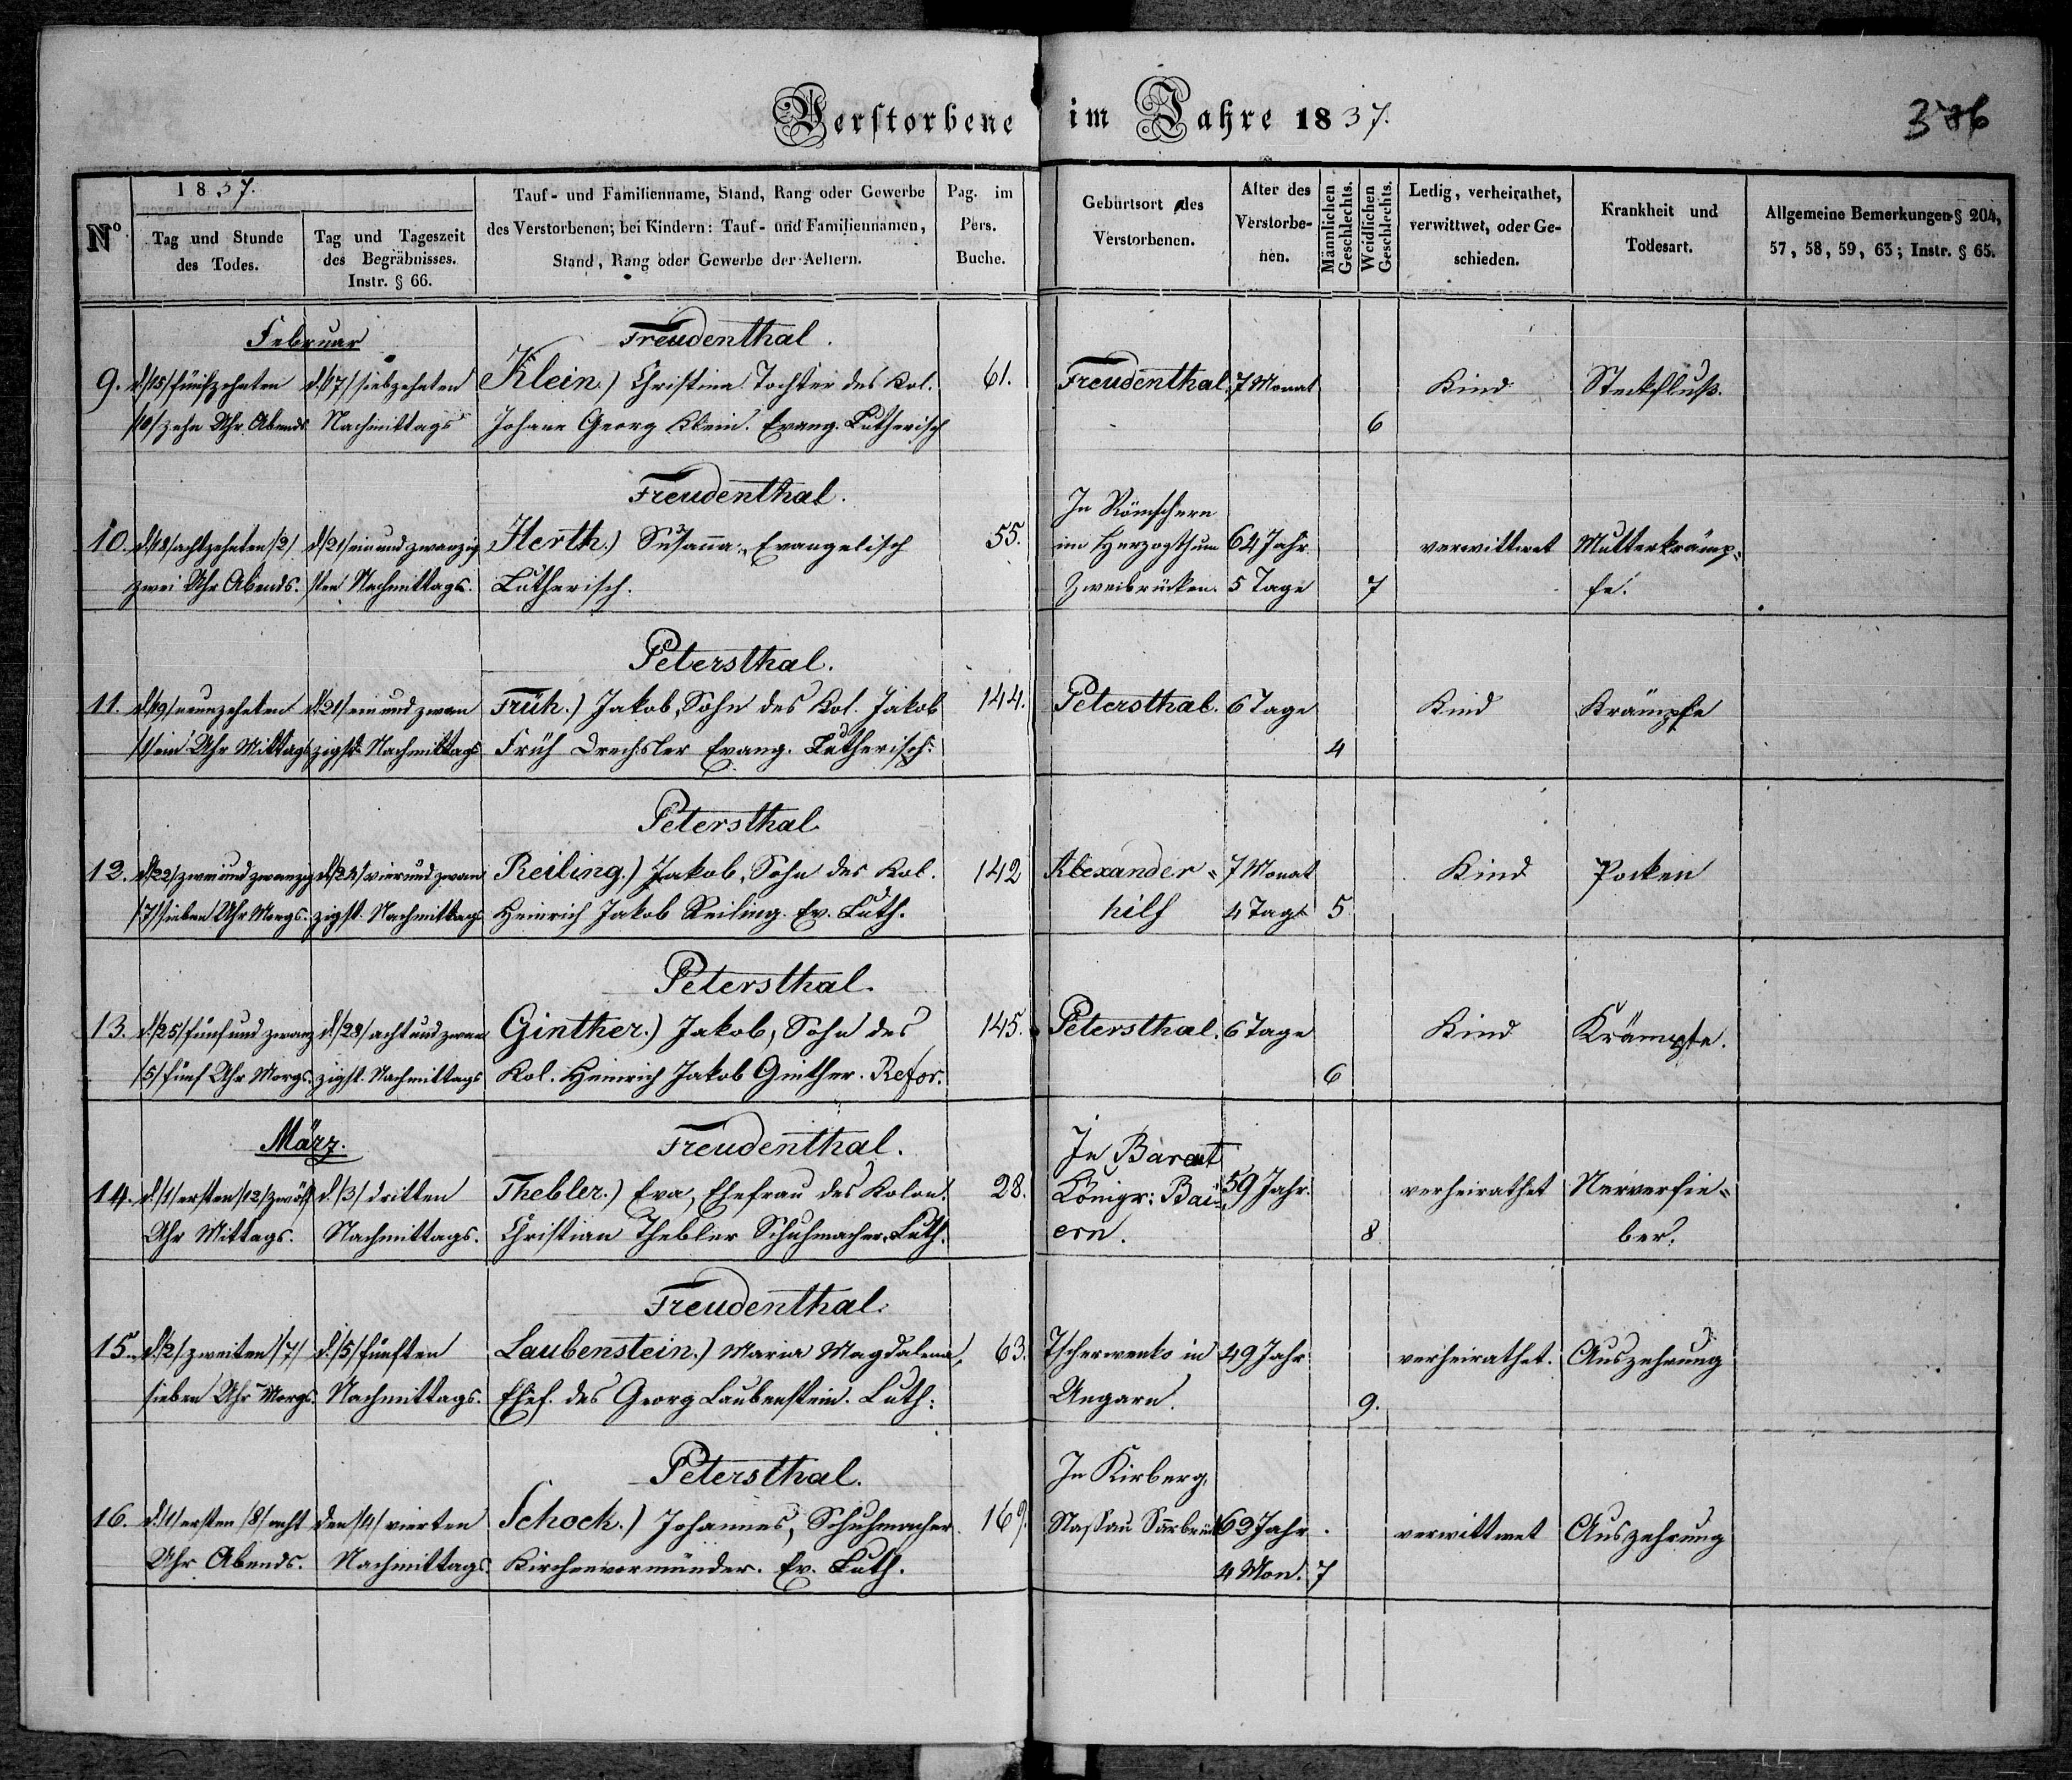 Verstorbene im Jahre 1837.
386
No.
1837.
Tag und Stunde des Todes.
Tag und Tageszeit des Begräbnisses. Instr. § 66.
Tauf- und Familienname, Stand, Rang oder Gewerbe
des Verstorbenen; bei Kindern: Tauf- und Familiennamen,
Stand, Rang oder Gewerbe der Aeltern.
Pag. im Pers. Buche.
Geburtsort des Verstorbenen.
Alter des Verstorbenen.
Männlichen Geschlechts.
Weidlichen Geschlechts.
Ledig, verheirathet, verwittwet, oder Geschieden.
Krankheit und Todesart.
Allgemeine Bemerkungen § 204, 57, 58, 59, 63; Instr. § 65.
Februar Freudenthal.
9. d./15/ fünfzehnten d./17/ siebzehnten Klein.) Christina Tochter des Kol. 61. Freudenthal. 7 Monat Kind Steckfluß.
/10/ zehn Uhr Abends Nachmittags Johann Georg Klein. Evang. Lutherisch 6
Freudenthal. In
10. d./18/ achtzehnten /2/ d./21/ ein und zwanzig Herth.) Susanna, Evangelisch 55. im Herzogthum 64 Jahr verwittwet Mutterkrämp-
zwei Uhr Abends. sten Nachmittags. Lutherisch. Zweibrücken. 5 Tage 7 fe.
Petersthal.
11. d./19/ neunzehnten d./21/ ein und zwan Früh.) Jakob, Sohn des Kol. Jakob 144. Petersthal. 6 Tage Kind Krämpfe
/1/ ein Uhr Mittags zigst. Nachmittags Früh Drechsler Evang. Lutherisch. 4
Petersthal
12. d./22/ zwei und zwanzig d./24/ vier und zwan Reiling.) Jakob, Sohn des Kol. 142 Alexander- 7 Monat Kind Pocken
/7/ sieben Uhr Morgs. zigst. Nachmittags Heinrich Jakob Reiling. Ev. Luth. hilf 4 Tage 5
Petersthal.
13. d./25/ fünf und zwanz d./28/ acht und zwan Ginther.) Jakob, Sohn des 145. Petersthal. 6 Tage Kind Krämpfe.
/5/ fünf Uhr Morgs. zigst. Nachmittags Kol. Heinrich Jakob Ginther. Refor. 6
März. Freudenthal. In Barat
14. d./1/ ersten /12/ zwölf d./3/ dritten Thebler.) Eva, Ehefrau des Kolon. 28. Königr: Bai- 59 Jahr. verheirathet Nervenfie-
Uhr Mittags. Nachmittags. Christian Thebler Schuhmacher. Luth. ern. 8 ber.
Freudenthal.
15. d./2/ zweiten /7/ d./5/ fünften Laubenstein.) Maria Magdalena, 63. Tscherwenko in 49 Jahr verheirathet. Auszehrung
sieben Uhr Morgs. Nachmittags. Ehef. des Georg Laubenstein. Luth: Ungarn. 9.
Petersthal. In Kirberg,
16. d./1/ ersten /8/ acht den /4/ vierten Schock.) Johannes, Schuhmacher. 169. Naßau Sarbrük 62 Jahr verwittwet Auszehrung
Uhr Abends. Nachmittags. Kirchenvormünder. Ev. Luth. 4 Mon. 7